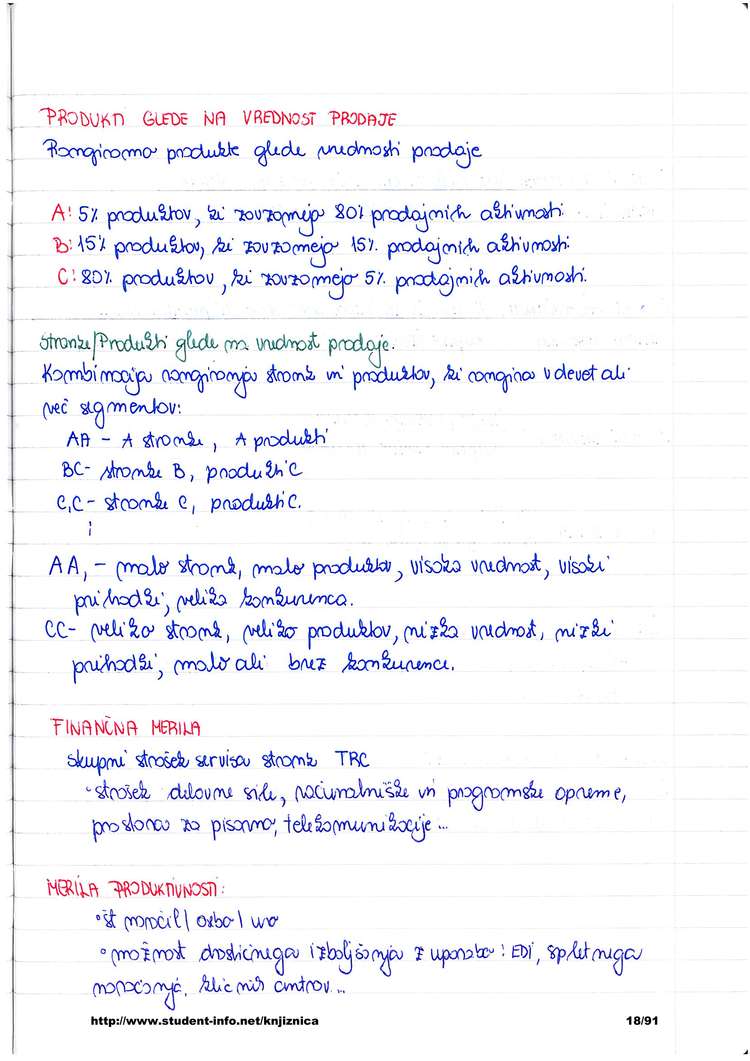 PRODUKTI GLEDE NA VREDNOST PRODAJE
Rangiramo produkte glede vrednosti prodaje
A: 5% produktov, ki zavzamejo 80% prodajnih aktivnosti.
B: 15% produktov, ki zavzamejo 15% prodajnih aktivnosti.
C: 80% produktov, ki zavzamejo 5% prodajnih aktivnosti.
Stranke/Produkti glede na vrednost prodaje.
Kombinacija rangiranja strank in produktov, ki rangira v devet ali
več segmentov:
AA - A stranke, A produkti
BC - stranke B, produkti C
C,C - stranke C, produkti C.
AA, - malo strank, malo produktov, visoka vrednost, visoki
prihodki, velika konkurenca.
CC - veliko strank, veliko produktov, nizka vrednost, nizki
prihodki, malo ali brez konkurence.
FINANČNA MERILA
Skupni strošek servisa strank TRC
• strošek delovne sile, računalniške in programske opreme,
prostorov za pisarno, telekomunikacije...
MERILA PRODUKTIVNOSTI:
• št naročil / oseba / uro
• možnost drastičnega izboljšanja z uporabo: EDI, spletnega
naročanja, klicnih centrov...
http://www.student-info.net/knjiznica 18/91